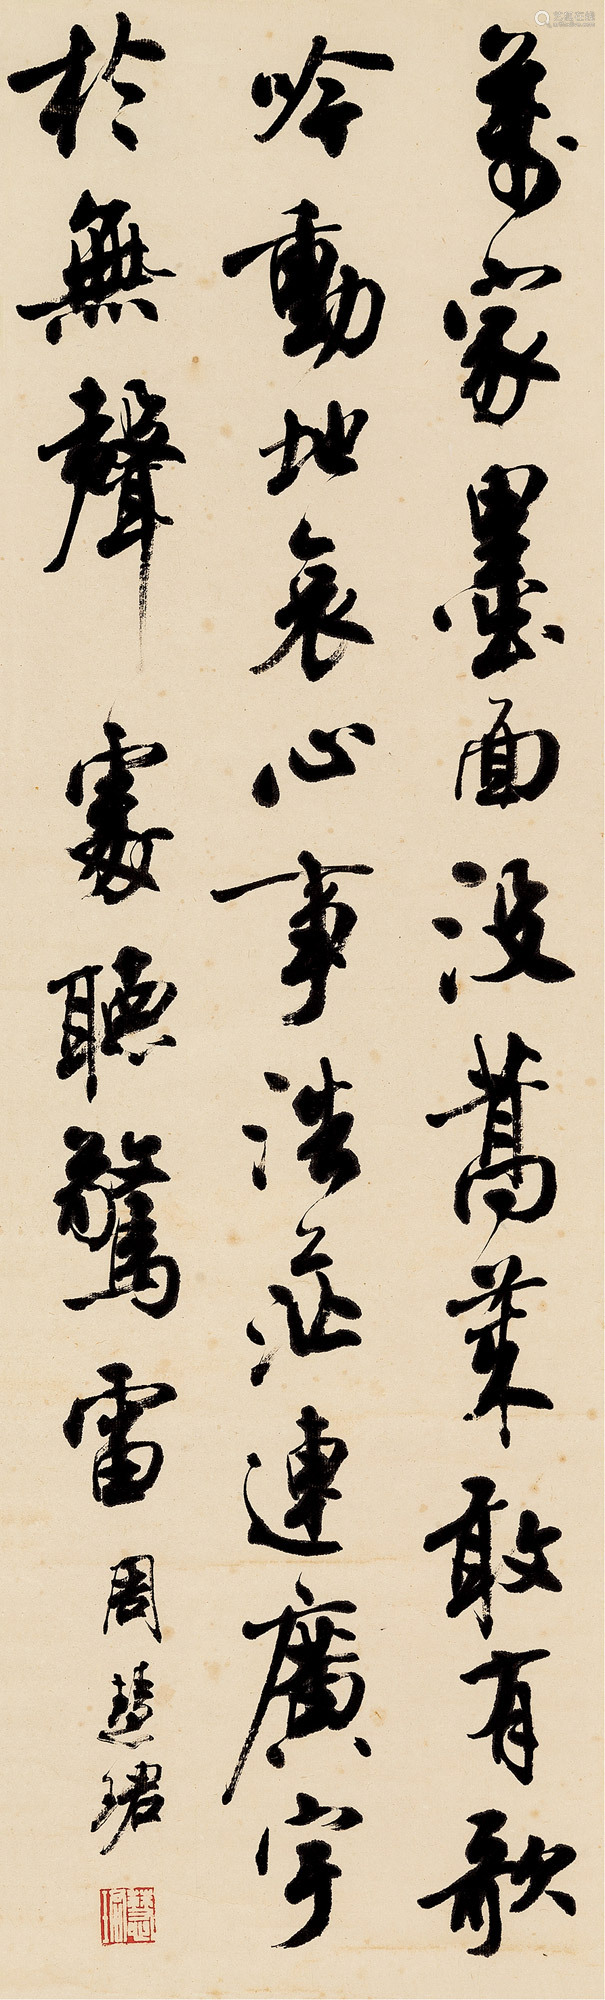 萬家墨面没蒿莱敢有歌
吟動地哀心事浩茫連廣宇
於無聲處聽驚雷
周慧珺
慧珺